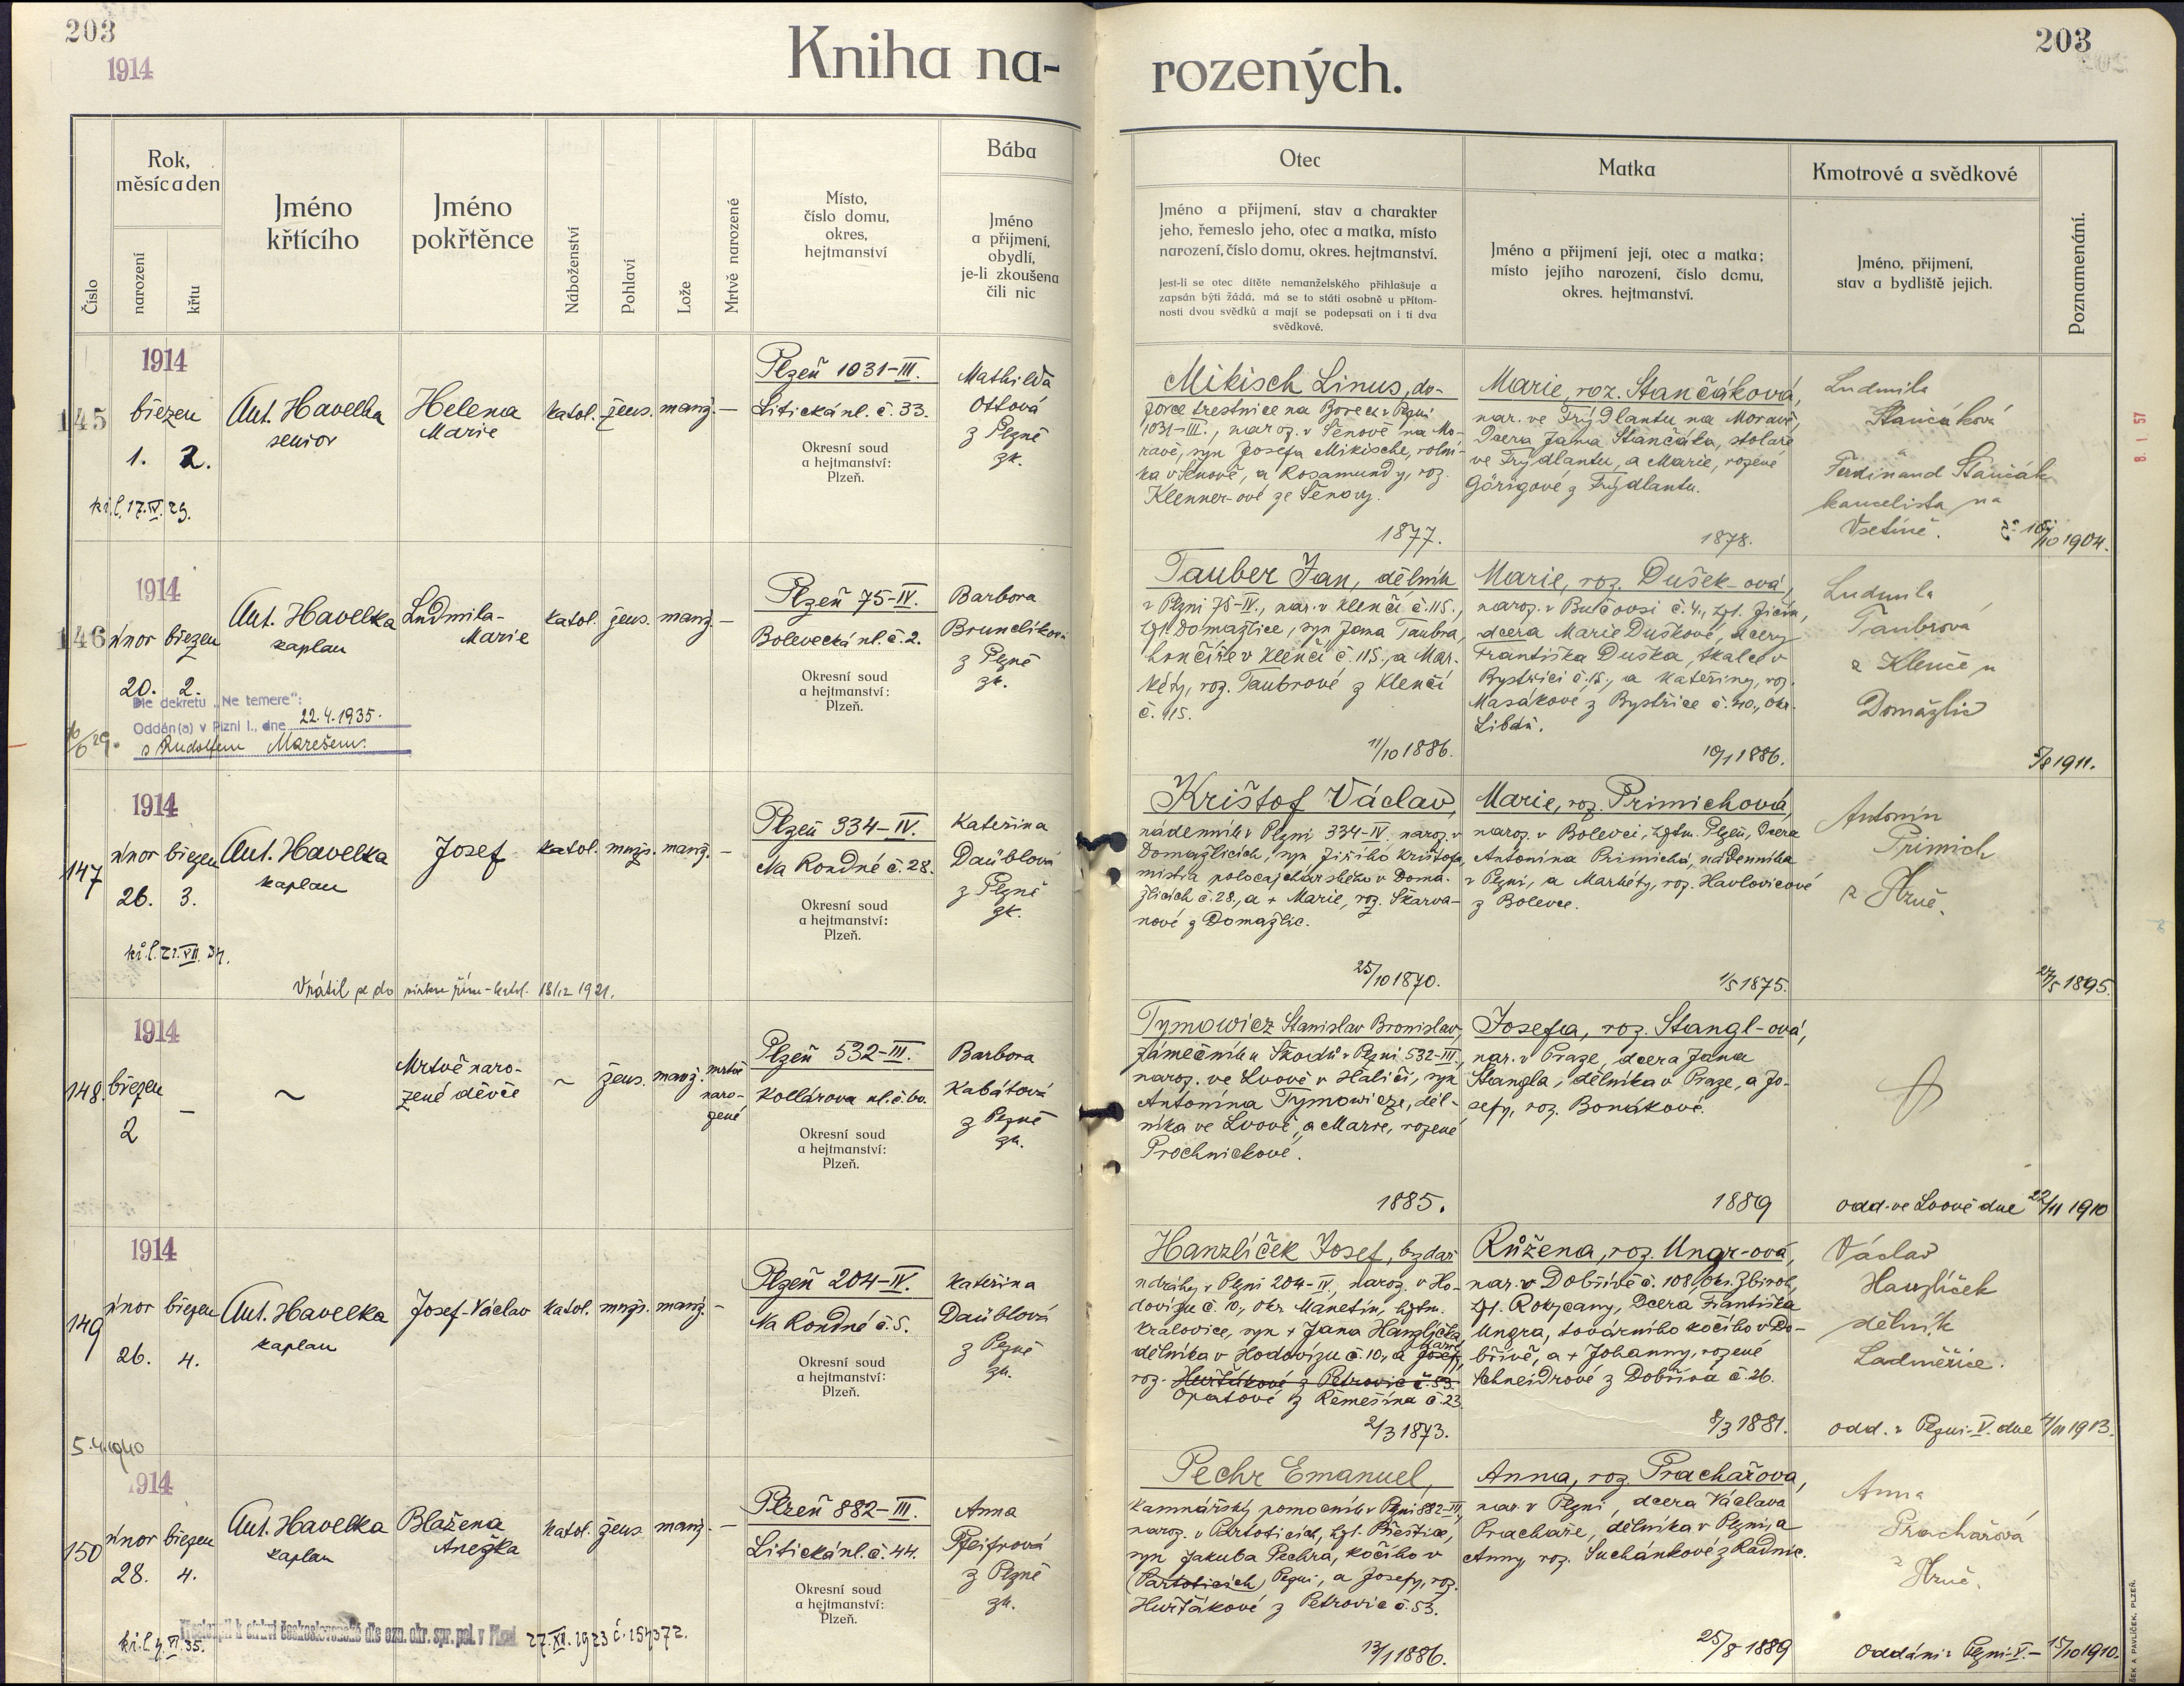 203
1914
Kniha na-
rozených.
203
Číslo
Rok,
měsíc a den
narození
křtu
Jméno
křtícího
Jméno
pokřtěnce
Náboženství
Pohlaví
Lože
Mrtvě narozené
Místo,
číslo domu,
okres,
hejtmanství
Bába
Jméno
a přijmení,
obydlí,
je-li zkoušena
čili nic
Otec
Jméno a přijmení, stav a charakter
jeho, řemeslo jeho, otec a matka, místo
narození, číslo domu, okres. hejtmanství.
Jest-li se otec dítěte nemanželského přihlašuje a
zapsán býti žádá, má se to státi osobně u přítom-
nosti dvou svědků a mají se podepsati on i ti dva
svědkové.
Matka
Jméno a přijmení její, otec a matka;
místo jejího narození, číslo domu,
okres. hejtmanství.
Kmotrové a svědkové
Jméno, přijmení,
stav a bydliště jejich.
Poznamenání.
145
1914
březen
1. 2.
kř.l. 17.IV. 29.
Ant. Havelka
senior
Helena
Marie
katol. žens. manž. —
Plzeň 1031-III.
Litická ul. č. 33.
Okresní soud
a hejtmanství:
Plzeň.
Mathilda
Ottová
z Plzně
zk.
Mikisch Linus, do-
zorce trestnice na Borech v Plzni
1031-III., naroz. v Šenově na Mo-
ravě, syn Josefa Mikische, rolní-
ka v Šenově, a Rosamundy, roz.
Klenner-ové ze Šenovy.
1877.
Marie, roz. Stančáková,
nar. ve Frýdlantu na Moravě,
dcera Jana Stančáka, stolaře
ve Frýdlantu, a Marie, rozené
Görigové z Frýdlantu.
1878.
Ludmila
Stančáková
a
Ferdinand Stančák
kancelista na
Vsetíně.
/10 1904.
8. 1. 57
146
1914
únor březen
20. 2.
Dle dekretu „Ne temere":
Oddán(a) v Plzni I., dne 22.4.1935.
s Rudolfem Marešem.
Ant. Havelka
kaplan
Ludmila-
Marie
katol. žens. manž. —
Plzeň 75-IV.
Bolevecká ul. č. 2.
Okresní soud
a hejtmanství:
Plzeň.
Barbora
Brunclíková
z Plzně
zk.
Tauber Jan, dělník
v Plzni 75-IV., nar. v Klenčí č. 115.,
hjt. Domažlice, syn Jana Taubra,
hončíře v Klenčí č. 115., a Mar-
kéty, roz. Taubrové z Klenčí
č. 115.
11/10 1886.
Marie, roz. Dušek-ová,
naroz. v Butovsi č. 4., hjt. Jičín,
dcera Marie Duškové, dcery
Františka Duška, skalce v
Bystřici č. 15., a Kateřiny, roz.
Masákové z Bystřice č. 40., okr.
Libáň.
10/1 1886.
Ludmila
Taubrová
z Klenče u
Domažlic
5/8 1911.
147
1914
únor březen
26. 3.
kř.l. 21.VII. 34.
Ant. Havelka
kaplan
Josef
katol. mužs. manž. —
Vrátil se do církve řím-katol. 18/12 1921.
Plzeň 334-IV.
Na Rondné č. 28.
Okresní soud
a hejtmanství:
Plzeň.
Kateřina
Daüblová
z Plzně
zk.
Krištof Václav,
nádenník v Plzni 334-IV. naroz. v
Domažlicích, syn Jiřího Krištofa,
mistra policajtského v Doma-
žlicích č. 28., a + Marie, roz. Škarva-
nové z Domažlic.
25/10 1870.
Marie, roz. Primichová,
naroz. v Bolevci, hjtm. Plzeň, dcera
Antonína Primicha, nádenníka
v Plzni, a Markéty, roz. Havlovicové
z Bolevce.
1/5 1875.
Antonín
Primich
27/5 1895.
148.
1914
březen
2
~
Mrtvě naro-
zené děvče
~ žens. manž. mrtvě
naro-
zené
Plzeň 532-III.
Kollárova ul. č. 60.
Okresní soud
a hejtmanství:
Plzeň.
Barbora
Kabátová
z Plzně
zk.
Tymowicz Stanislav Bronislav,
zámečník u Škodů v Plzni 532-III.,
naroz. ve Lvově v Haliči, syn
Antonína Tymowicze, děl-
níka ve Lvově, a Marie, rozené
Prochnickové.
1885.
Josefa, roz. Stangl-ová,
nar. v Praze, dcera Jana
Stangla, dělníka v Praze, a Jo-
sefy, roz. Bonákové.
1889
odd. ve Lvově dne 22/11 1910
149
1914
únor březen
26. 4.
5.4.1940
Ant. Havelka
kaplan
Josef-Václav
katol. mužs. manž. —
Plzeň 204-IV.
Na Rondné č. 5.
Okresní soud
a hejtmanství:
Plzeň.
Kateřina
Daüblová
z Plzně
zk.
Hanzlíček Josef, brzdař
u dráhy v Plzni 204-IV., naroz. v Ho-
dovizu č. 10., okr. Manetín, hjtm.
Kralovice, syn + Jana Hanzlíčka,
dělníka v Hodovizu č. 10., a Josefy, Marie
roz. Huřťákové z Petrovic č. 53.
Opatové z Řemešína č. 23.
2/3 1873.
Růžena, roz. Ungr-ová,
nar. v Dobřívě č. 108, okr. Zbiroh,
hjt. Rokycany, dcera Františka
Ungra, továrního kočího v Do-
břívě, a + Johanny, rozené
Schneidrové z Dobřína č. 26.
8/3 1881.
Václav
Hanzlíček
dělník
Ladměřice.
odd. v Plzni-V. dne 4/11 1913.
150
1914
únor březen
28. 4.
kř.l. 4.VI. 35.
Ant. Havelka
kaplan
Blažena
Anežka
katol. žens. manž. —
Přestoupil k církvi československé dle ozn. okr. spr. pol. v Plzni 27.XII. 1923 č. 154372.
Plzeň 882-III.
Litická ul. č. 44.
Okresní soud
a hejtmanství:
Plzeň.
Anna
Pfeifrová
z Plzně
zk.
Pechr Emanuel,
kamnářský pomocník v Plzni 882-III,
naroz. v Partoticích, hjt. Přeštice,
syn Jakuba Pechra, kočího v
(Partoticích) Plzni, a Josefy, roz.
Huřťákové z Petrovic č. 53.
13/1 1886.
Anna, roz. Prachařova,
nar. v Plzni, dcera Václava
Prachaře, dělníka v Plzni, a
Anny roz. Suchánkové z Radnic.
25/8 1889
Anna
Prachařová
Oddáni v Plzni-V. — 15/10 1910.
ŠEK A PAVLÍČEK, PLZEŇ.